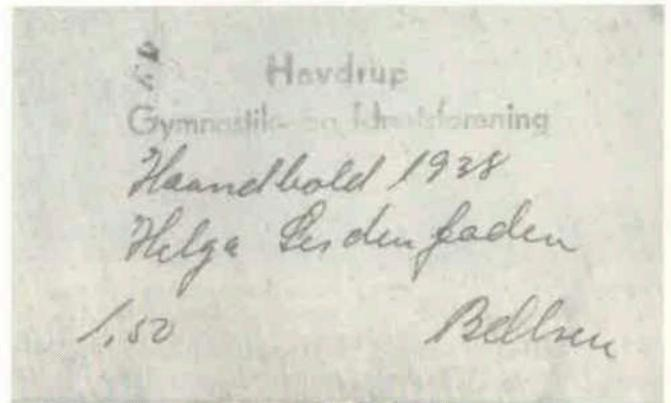 Havdrup
Gymnastik- og Idrætsforening
Haandbold 1938
Helga Seidenfaden
1,50